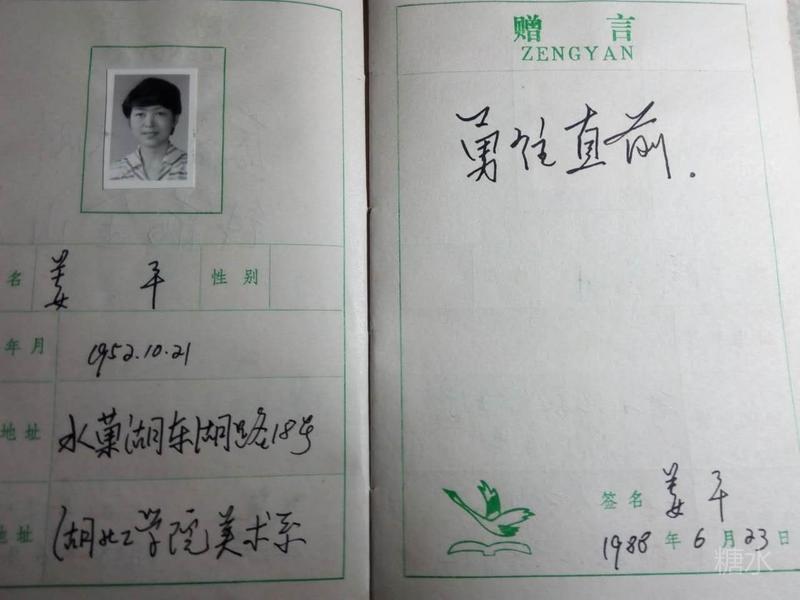 名 姜平 性别
年月 1952.10.21
地址 水菓湖东湖路18号
地址 湖北工学院美术系
赠言
ZENGYAN
勇往直前.
签名 姜平
1988年6月23日
糖水